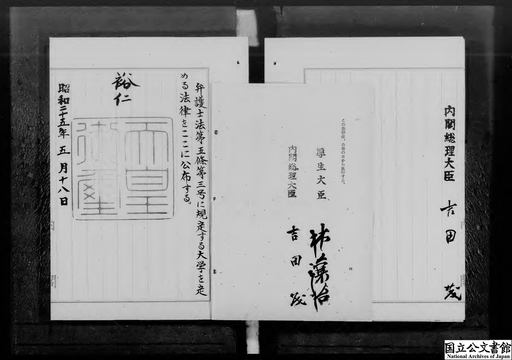 内閣総理大臣 吉田茂
厚生大臣 林譲治
内閣総理大臣 吉田茂
弁護士法第五條第三号に規定する大学を定
める法律をここに公布する。
裕仁
天皇
御璽
昭和二十五年五月十八日
国立公文書館
National Archives of Japan